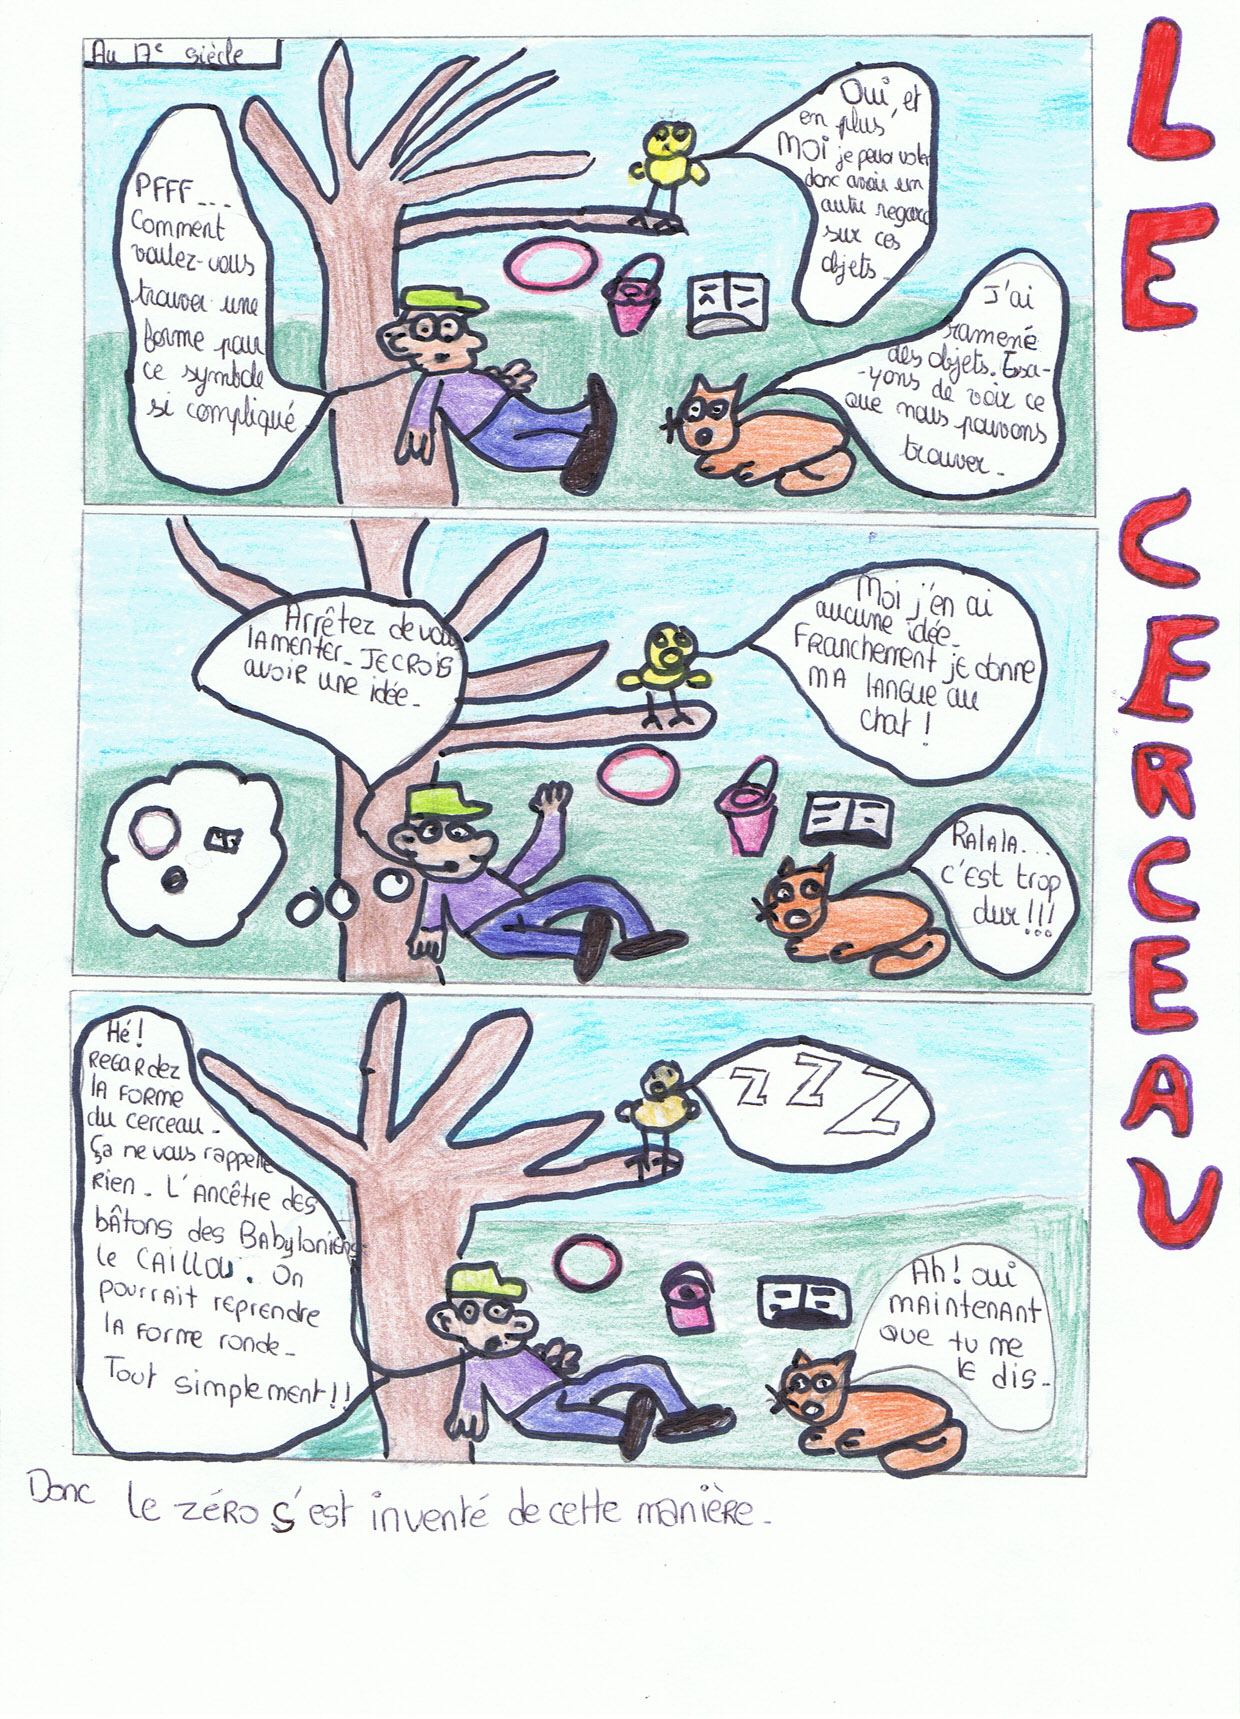 LE CERCEAU
Au 17e siècle
PFFF...
Comment
voulez-vous
trouver une
forme pour
ce symbole
si compliqué
Oui, et
en plus,
MOI je peux voler
donc avoir un
autre regard
sur ces
objets.
J'ai
ramené
des objets. Essa-
-yons de voir ce
que nous pouvons
trouver.
Arrêtez de vous
lamenter. JE CROIS
avoir une idée.
Moi j'en ai
aucune idée.
Franchement je donne
MA langue au
chat !
Ralala...
c'est trop
dur !!!...
Hé !
REGARdez
la forme
du cerceau.
Ça ne vous rappelle
rien. L'Ancêtre des
bâtons des Babyloniens
le CAILLOU. On
pourrait reprendre
la forme ronde.
Tout simplement !!
Z Z Z
Ah ! oui
maintenant
que tu me
le dis.
Donc le zéro s'est inventé de cette manière.